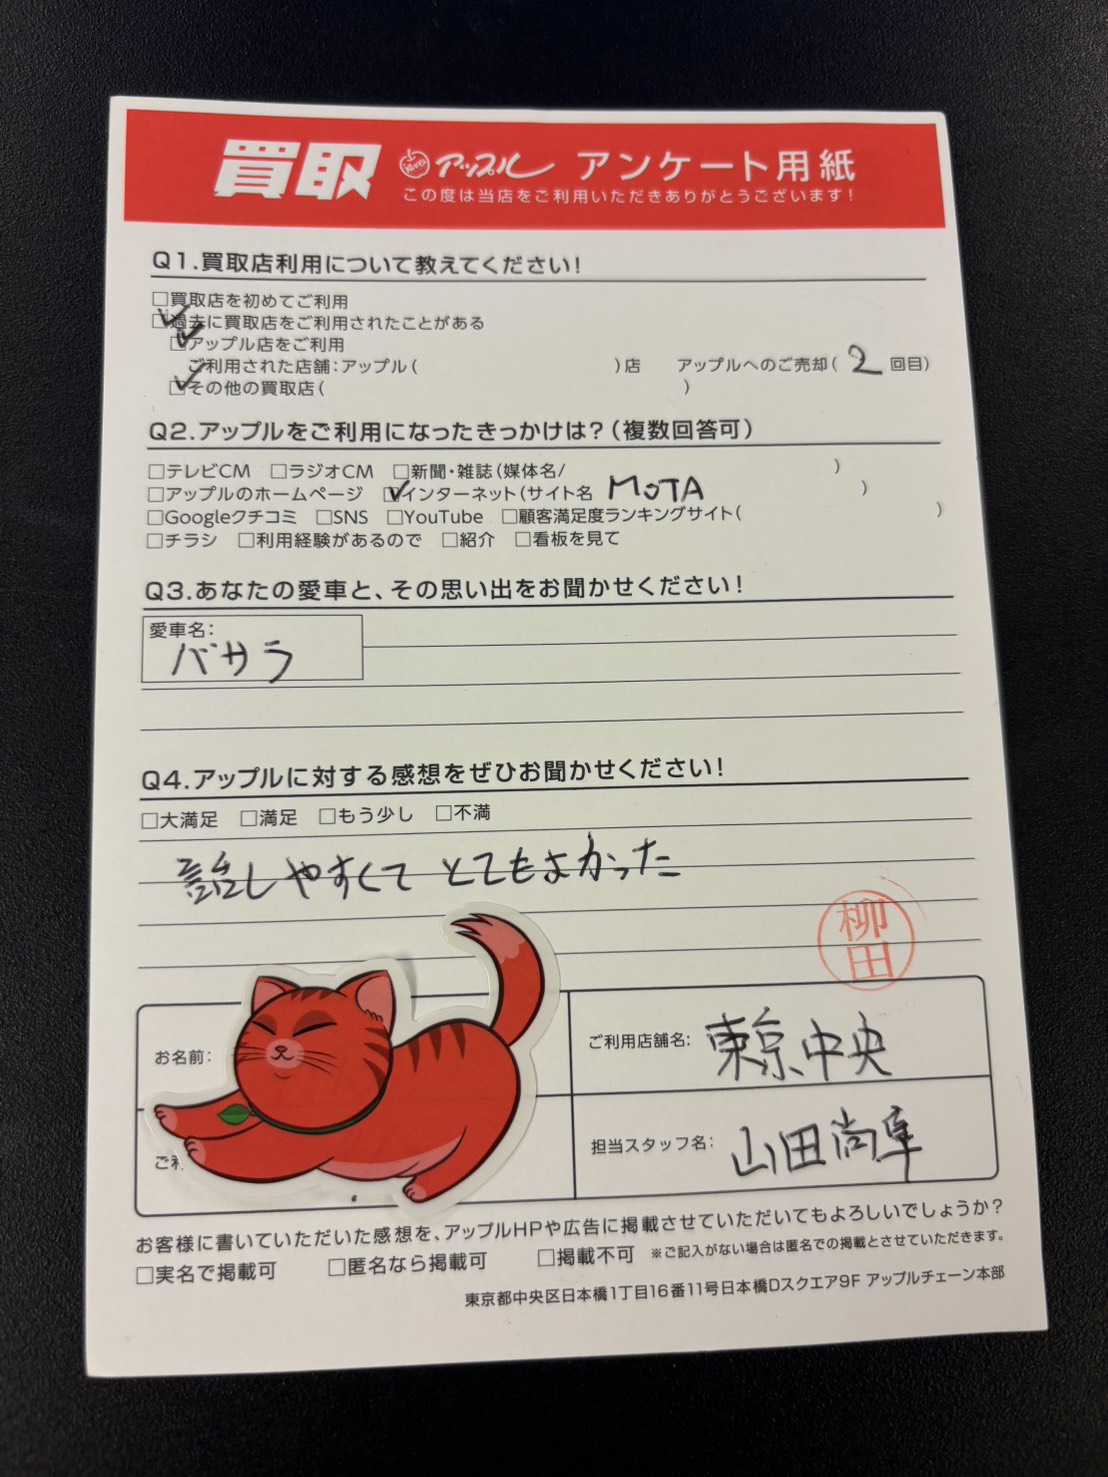 買取 アップル アンケート用紙
この度は当店をご利用いただきありがとうございます！
Q1.買取店利用について教えてください！
□買取店を初めてご利用
☑過去に買取店をご利用されたことがある
☑アップル店をご利用
ご利用された店舗：アップル（ ）店 アップルへのご売却（ 2 回目）
☑その他の買取店（ ）
Q2.アップルをご利用になったきっかけは？（複数回答可）
□テレビCM □ラジオCM □新聞・雑誌（媒体名/ ）
□アップルのホームページ ☑インターネット（サイト名 MOTA ）
□Googleクチコミ □SNS □YouTube □顧客満足度ランキングサイト（ ）
□チラシ □利用経験があるので □紹介 □看板を見て
Q3.あなたの愛車と、その思い出をお聞かせください！
愛車名：
バサラ
Q4.アップルに対する感想をぜひお聞かせください！
□大満足 □満足 □もう少し □不満
話しやすくて とてもよかった
柳田
お名前：
ご利用店舗名： 東京中央
ご利
担当スタッフ名： 山田尚隼
お客様に書いていただいた感想を、アップルHPや広告に掲載させていただいてもよろしいでしょうか？
□実名で掲載可 □匿名なら掲載可 □掲載不可 ※ご記入がない場合は匿名での掲載とさせていただきます。
東京都中央区日本橋1丁目16番11号日本橋Dスクエア9F アップルチェーン本部